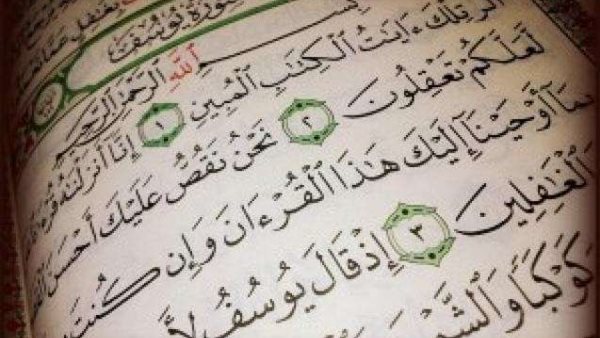 بِغَٰفِلٍ عَمَّا
سُورَةُ يُوسُفَ
بِسْمِ ٱللَّهِ ٱلرَّحْمَٰنِ ٱلرَّحِيمِ
الٓر تِلْكَ ءَايَٰتُ ٱلْكِتَٰبِ ٱلْمُبِينِ ١ إِنَّآ أَنزَلْنَٰهُ
لَّعَلَّكُمْ تَعْقِلُونَ ٢ نَحْنُ نَقُصُّ عَلَيْكَ أَحْسَنَ
بِمَآ أَوْحَيْنَآ إِلَيْكَ هَٰذَا ٱلْقُرْءَانَ وَإِن كُنتَ
ٱلْغَٰفِلِينَ ٣ إِذْ قَالَ يُوسُفُ
كَوْكَبًا وَٱلشَّمْسَ